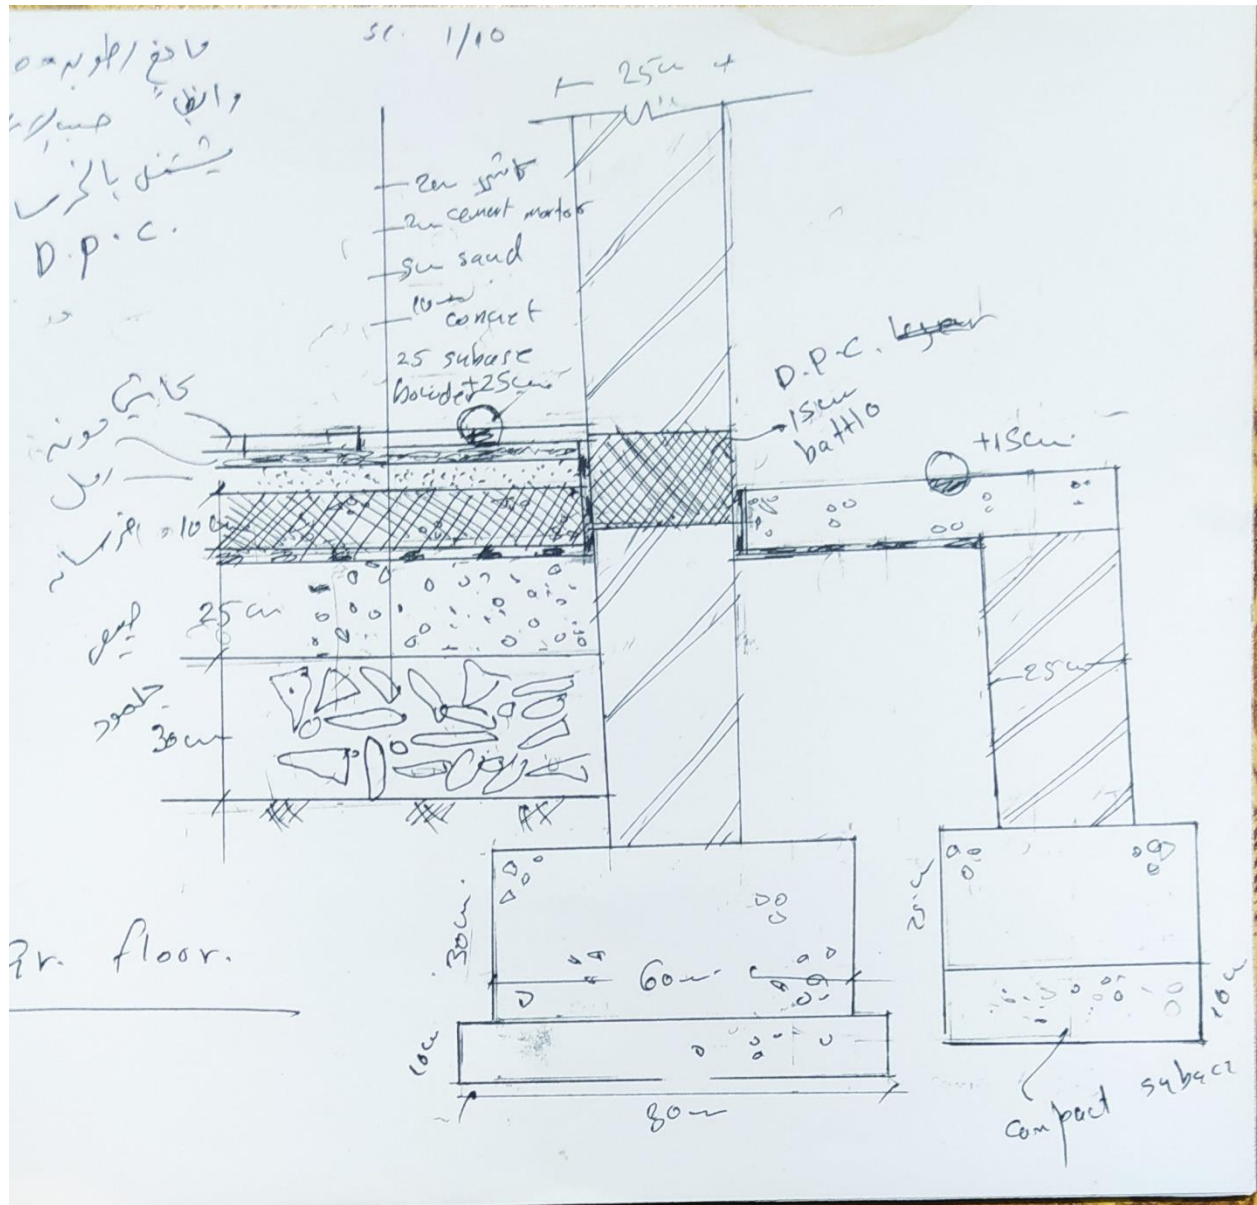 sc. 1/10
مانع رطوبة
وايضاً صب
يشتمل بالخرسا
D.P.C.
25cm
2cm كاشي
2cm cement mortor
5cm sand
10cm
concret
25 subase
bouder
+25cm
D.P.C. layer
15cm
battlo
+15cm
كاشي
مونه
رمل
10cm
25cm
جلمود
30cm
25cm
Gr. floor.
30cm
60cm
10cm
80cm
25cm
10cm
compact subace